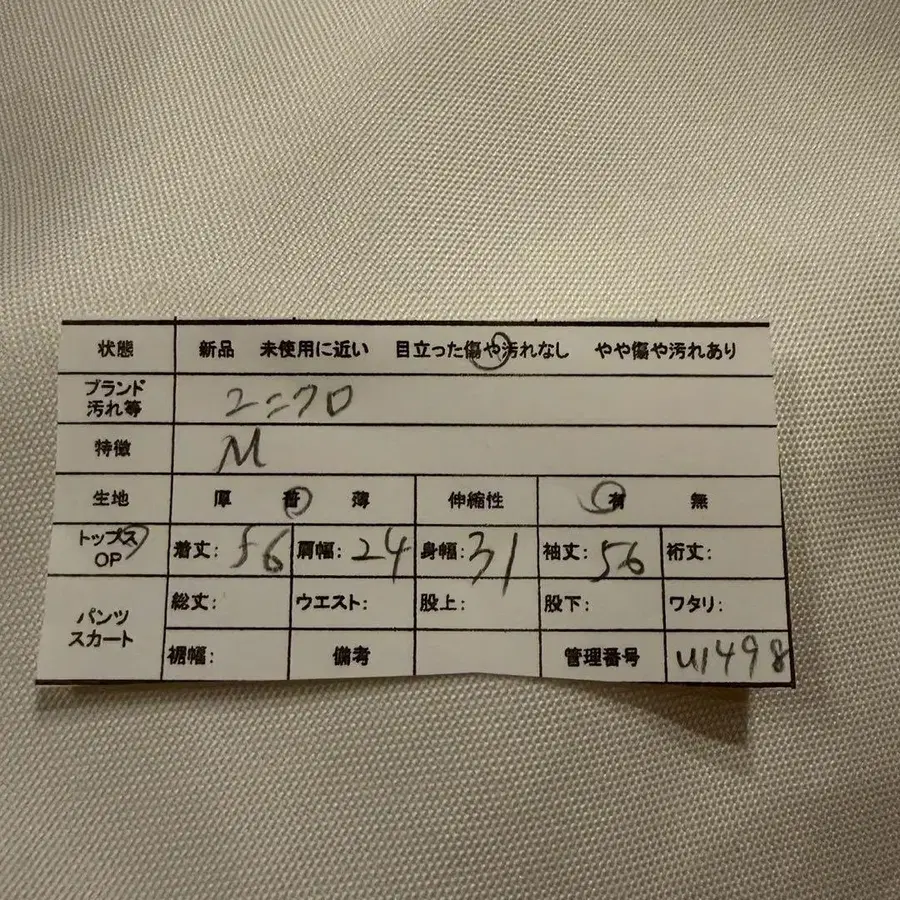 状態 新品 未使用に近い 目立った傷や汚れなし やや傷や汚れあり
ブランド 汚れ等 ユニクロ
特徴 M
生地 厚 普 薄 伸縮性 有 無
トップス OP 着丈: 56 肩幅: 24 身幅: 31 袖丈: 56 裄丈:
パンツ スカート 総丈: ウエスト: 股上: 股下: ワタリ:
裾幅: 備考 管理番号 U1498